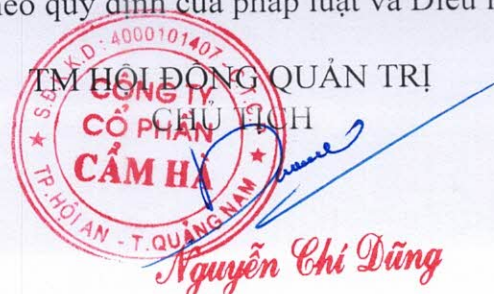 eo quy định của pháp luật và Điều l
TM HỘI ĐỒNG QUẢN TRỊ
CHỦ TỊCH
S.Đ.K.K.D: 4000101407 - C.T.C.P
CÔNG TY
CỔ PHẦN
CẨM HÀ
TP.HỘI AN - T.QUẢNG NAM
Nguyễn Chí Dũng